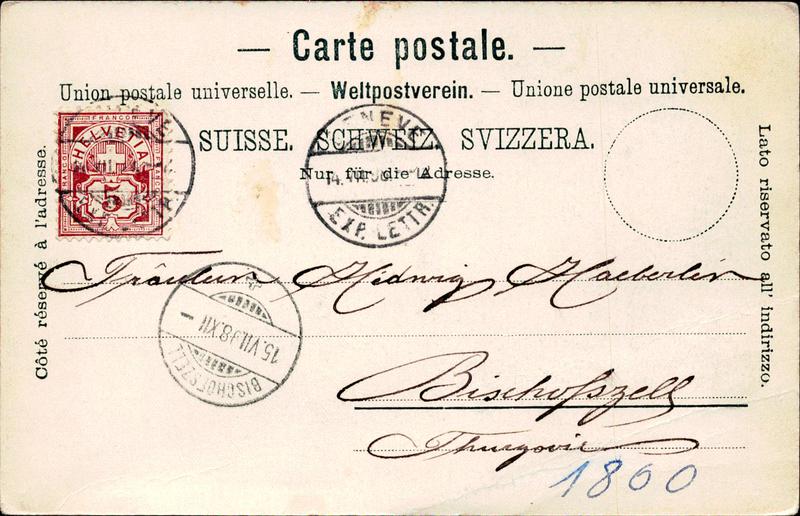 — Carte postale. —
Union postale universelle. — Weltpostverein. — Unione postale universale.
SUISSE. SCHWEIZ. SVIZZERA.
Nur für die Adresse.
Côté réservé à l'adresse.
Lato riservato all' indirizzo.
FRANCO
HELVETIA
5
GENEVE
14.VII.98
EXP. LETTR.
Fräulein Hedwig Haeberlin
15.VII.98.XII
BISCHOFSZELL
Bischofszell
Thurgovie
1800